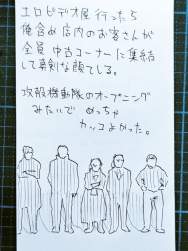 エロビデオ屋行ったら
俺含め店内のお客さんが
全員中古コーナーに集結
して真剣な顔してる。
攻殻機動隊のオープニング
みたいで めっちゃ
カッコよかった。